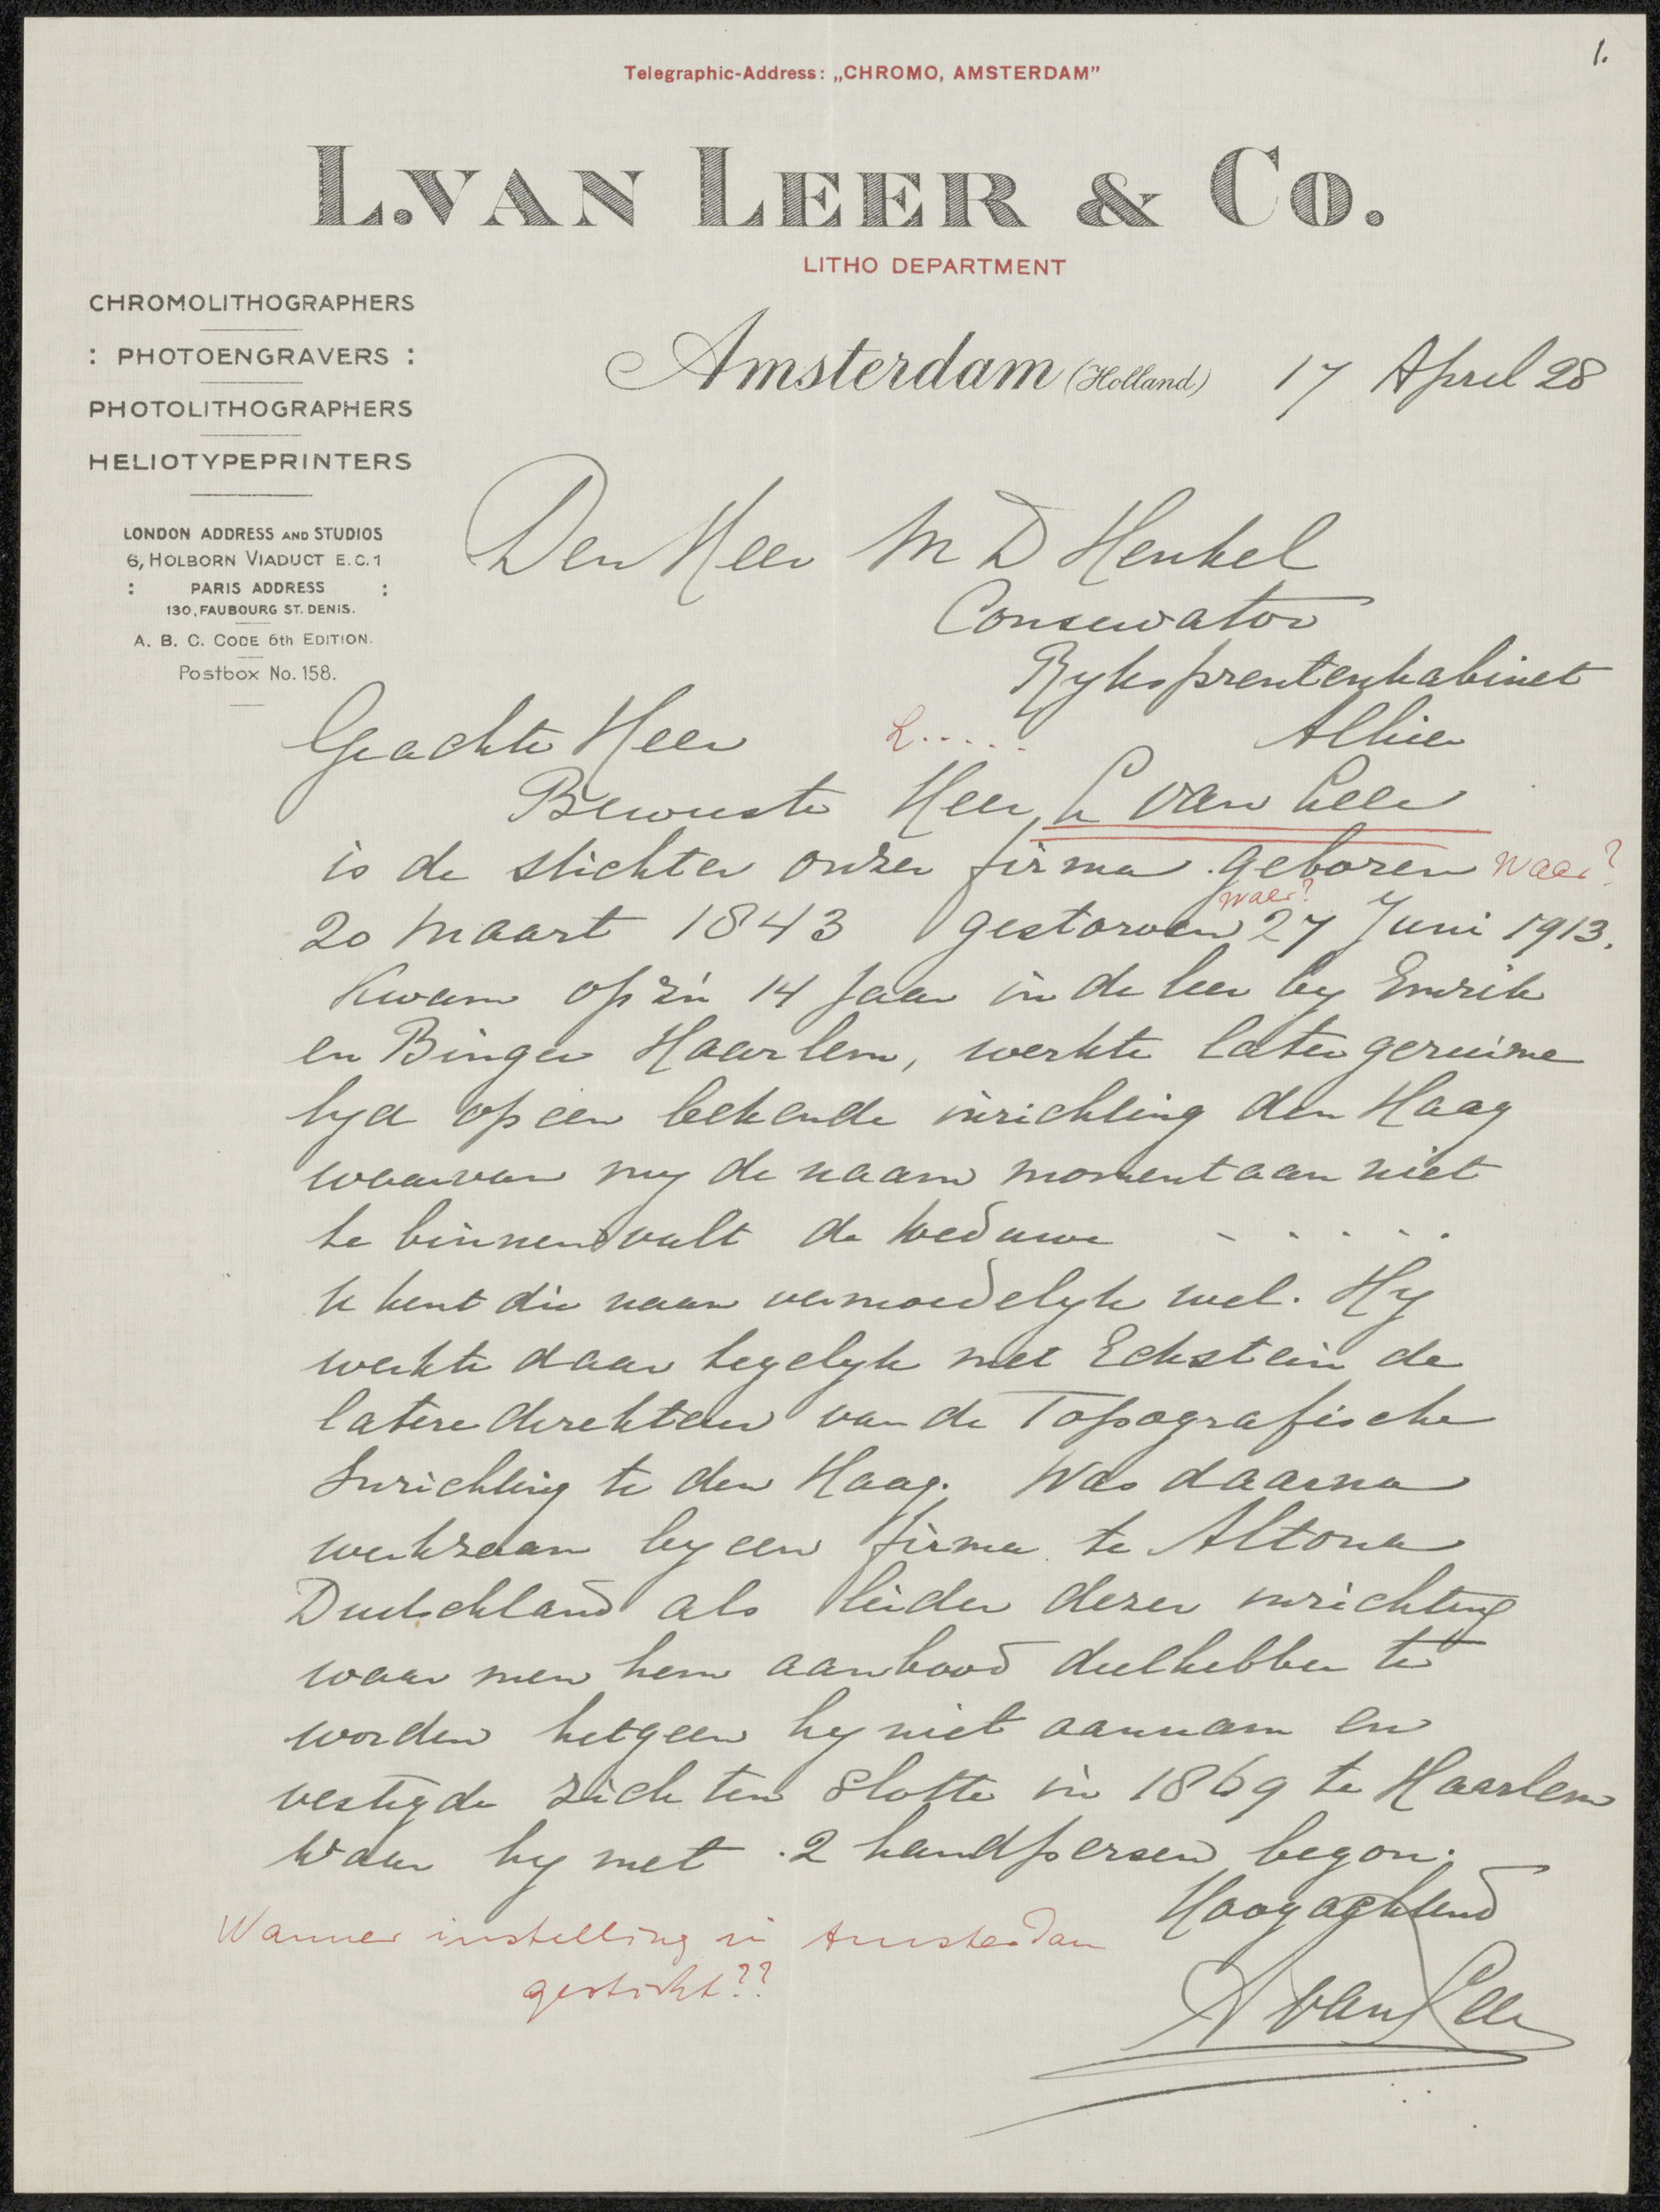 1.
Telegraphic-Address: „CHROMO, AMSTERDAM”
L. VAN LEER & CO.
LITHO DEPARTMENT
CHROMOLITHOGRAPHERS
: PHOTOENGRAVERS :
PHOTOLITHOGRAPHERS
HELIOTYPEPRINTERS
LONDON ADDRESS AND STUDIOS
6, HOLBORN VIADUCT E.C.1
: PARIS ADDRESS :
130, FAUBOURG ST. DENIS.
A. B. C. CODE 6th EDITION.
Postbox No. 158.
Amsterdam (Holland) 17 April 28
Den Heer M D Henkel
Conservator
Ryksprentenkabinet
Alhier
Geachte Heer
L.....
Bewuste Heer L van Leer
is de stichter onzer firma . geboren waar?
waar?
20 Maart 1843 gestorven 27 Juni 1913.
Kwam op zìn 14 jaar in de leer by Emrik
en Binger Haarlem, werkte later geruime
tyd op een bekende inrichting den Haag
waarvan my de naam momentaan niet
te binnen valt de Weduwe . . . . .
U kent die naam vermoedelyk wel. Hy
werkte daar tegelyk met Eckstein de
latere direkteur van de Topografische
Inrichting te den Haag. Was daarna
werkzaam by een firma te Altona
Duitschland als leider dezer inrichting
waar men hem aanbood deelhebber te
worden hetgeen hy niet aannam en
vestigde zich ten slotte in 1869 te Haarlem
waar hy met 2 handpersen begon.
Hoogachtend
A van Leer
Wanneer instelling in Amsterdam
gesticht??